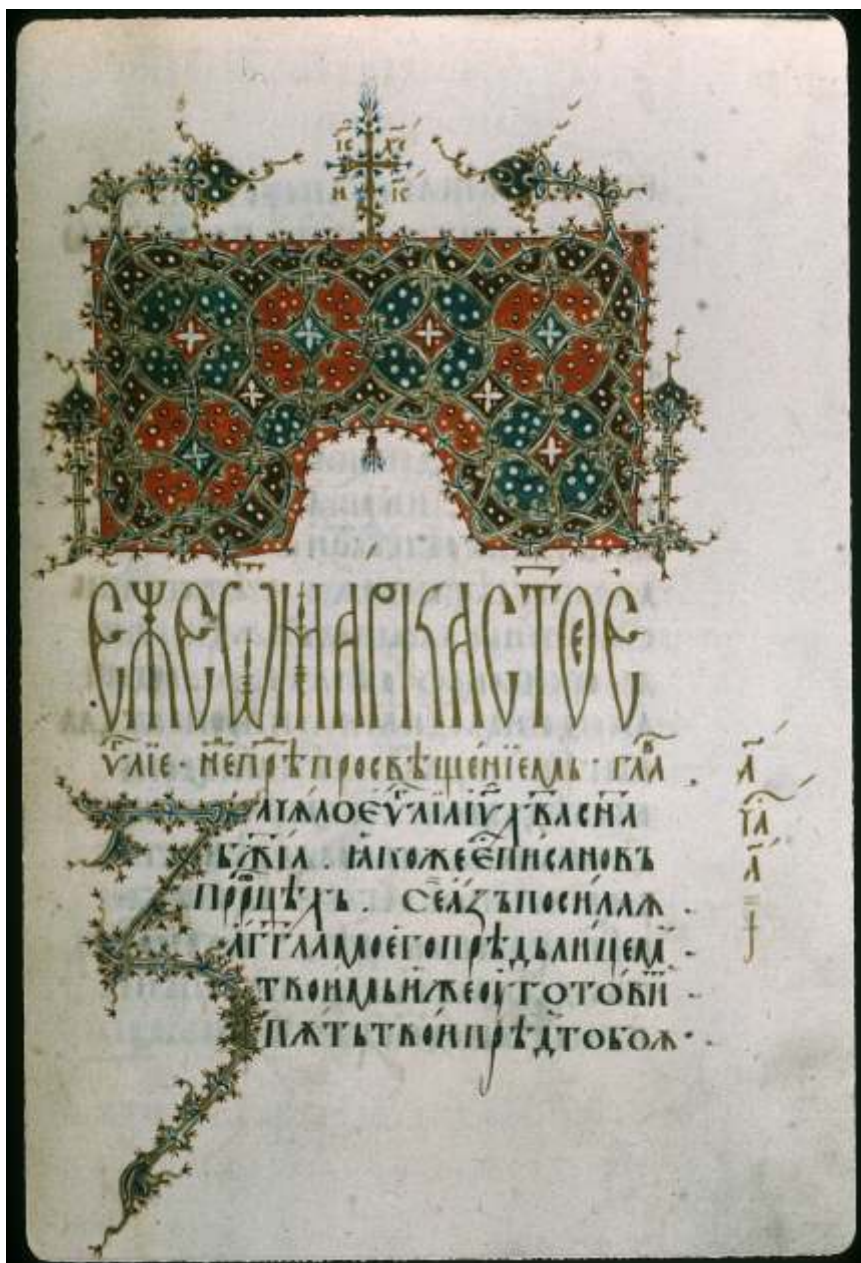 І҃С Х҃С
НИ КА
ЕЖЕ Ѿ МАРКА СТ҃ОЕ
ЕѴ҃ЛІЕ · НЕ ПРѢ ПРОСВѢЩЕНІЕМЬ · ГЛА҃В А҃
ЗАЧѦЛО ЕѴ҃ЛІА ІѴ҃ Х҃ВА СН҃А
БЖ҃ІА . ІАКОЖЕ Е҃ ПИСАНО ВЪ
ПРОРО҃ЦѢХЬ . СЕ АЗЪ ПОСИЛАѪ
АГ҃ГЛА МОЕГО ПРѢДЬ ЛИЦЕМ
ТВОИМЬ ИЖЕ ОУГОТОВИТ
ПѪТЬ ТВОИ ПРѢД ТОБОѪ